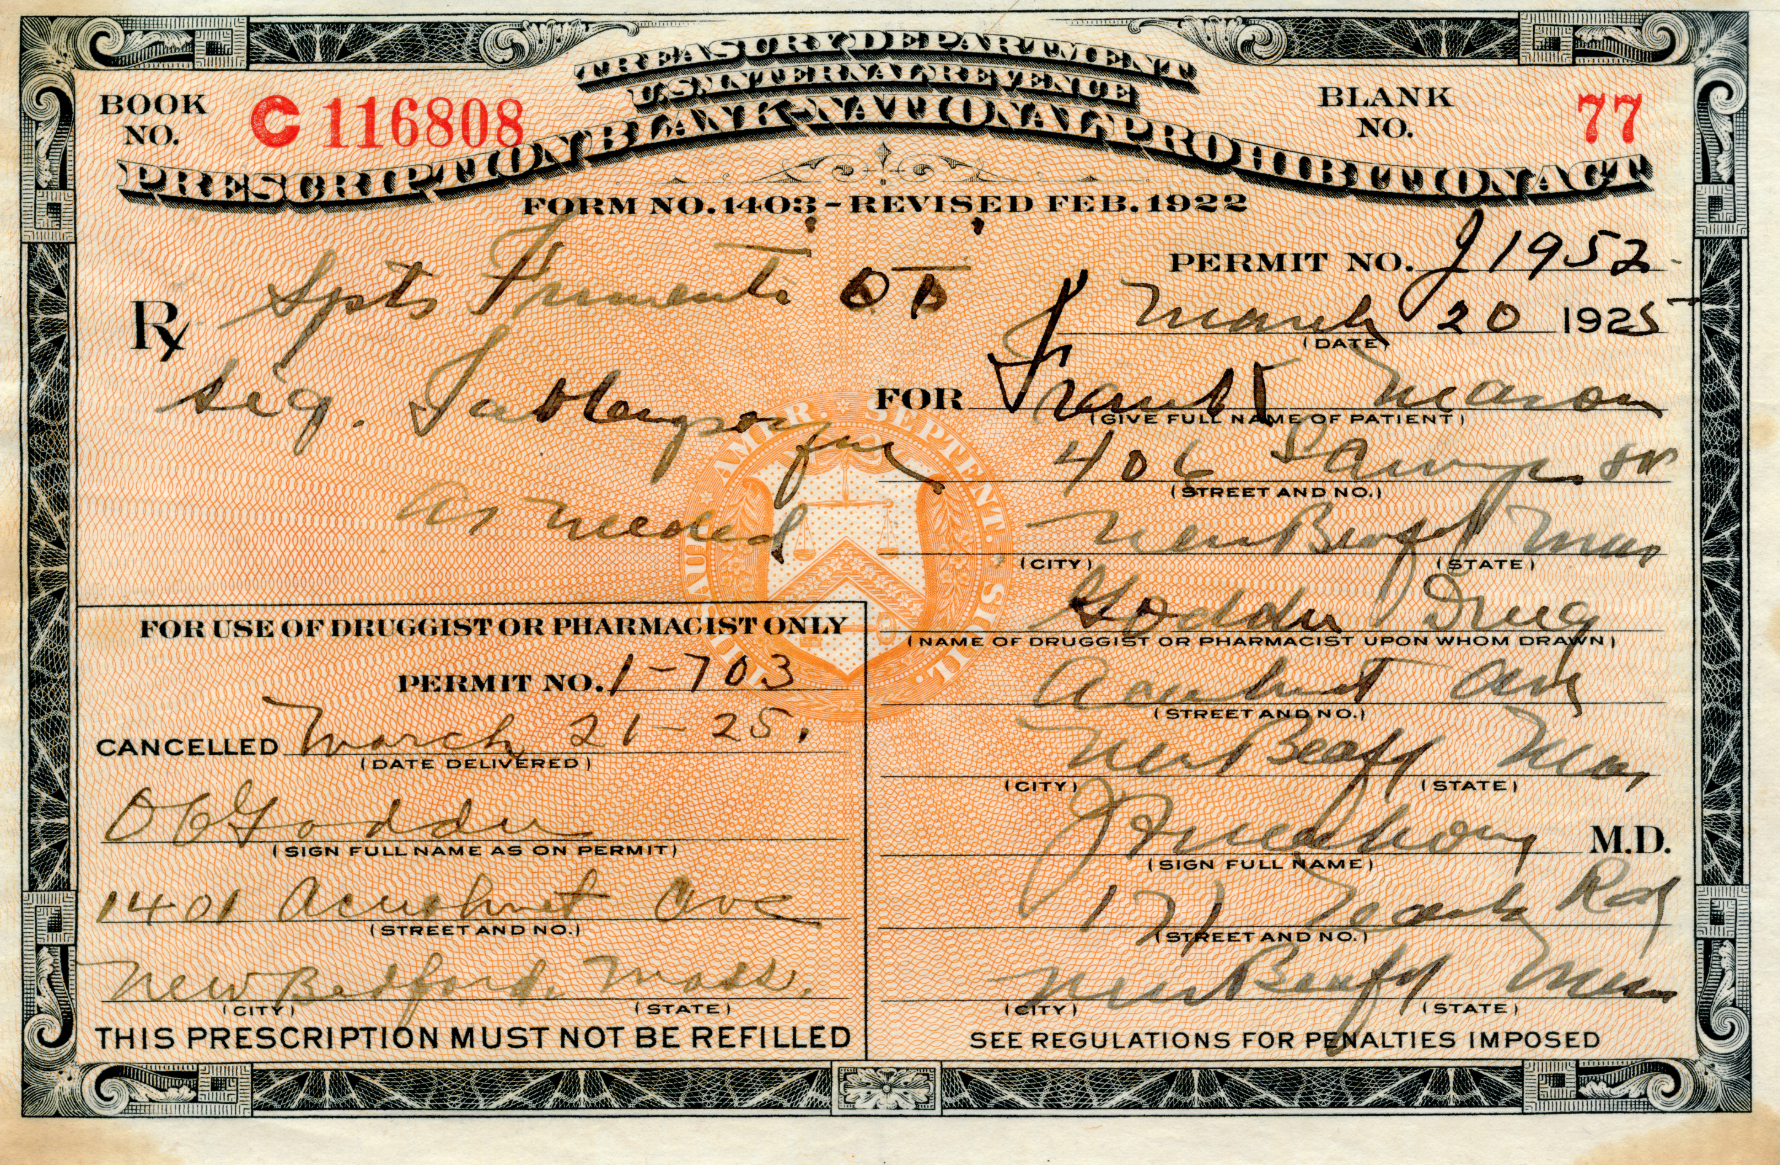 TREASURY DEPARTMENT
U.S. INTERNAL REVENUE
PRESCRIPTION BLANK-NATIONAL PROHIBITION ACT
BOOK NO. C116808
BLANK NO. 77
FORM NO. 1403 - REVISED FEB. 1922
PERMIT NO. J1952
Rx Spts Frumenti OT
March 20 1925
(DATE)
Sig. Tablespoonful
as needed
FOR Frank Mason
(GIVE FULL NAME OF PATIENT)
406 Sawyer St
(STREET AND NO.)
New Bedford Mass
(CITY) (STATE)
Goddu Drug
(NAME OF DRUGGIST OR PHARMACIST UPON WHOM DRAWN)
Acushnet Ave
(STREET AND NO.)
New Bedf Mas
(CITY) (STATE)
M.D.
(SIGN FULL NAME)
(STREET AND NO.)
New Bedf Mass
(CITY) (STATE)
SEE REGULATIONS FOR PENALTIES IMPOSED
FOR USE OF DRUGGIST OR PHARMACIST ONLY
PERMIT NO. 1-703
CANCELLED March 21-25.
(DATE DELIVERED)
Goddu
(SIGN FULL NAME AS ON PERMIT)
1401 Acushnet Ave
(STREET AND NO.)
New Bedford, Mass.
(CITY) (STATE)
THIS PRESCRIPTION MUST NOT BE REFILLED